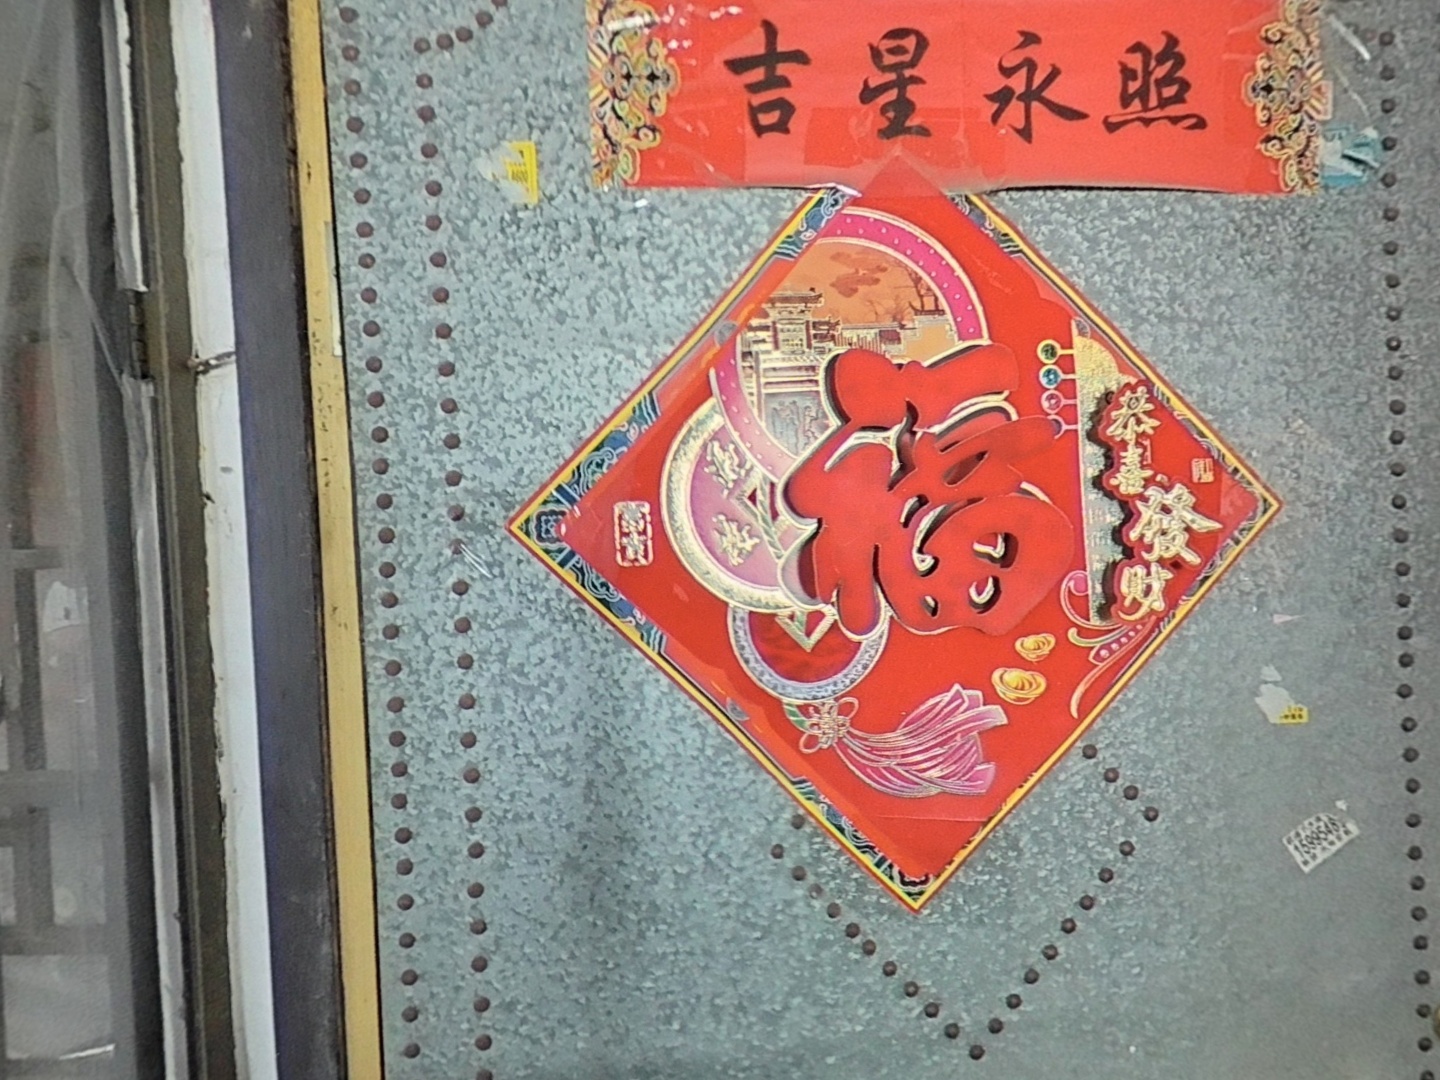 吉星永照
福
恭喜
發财
1599548